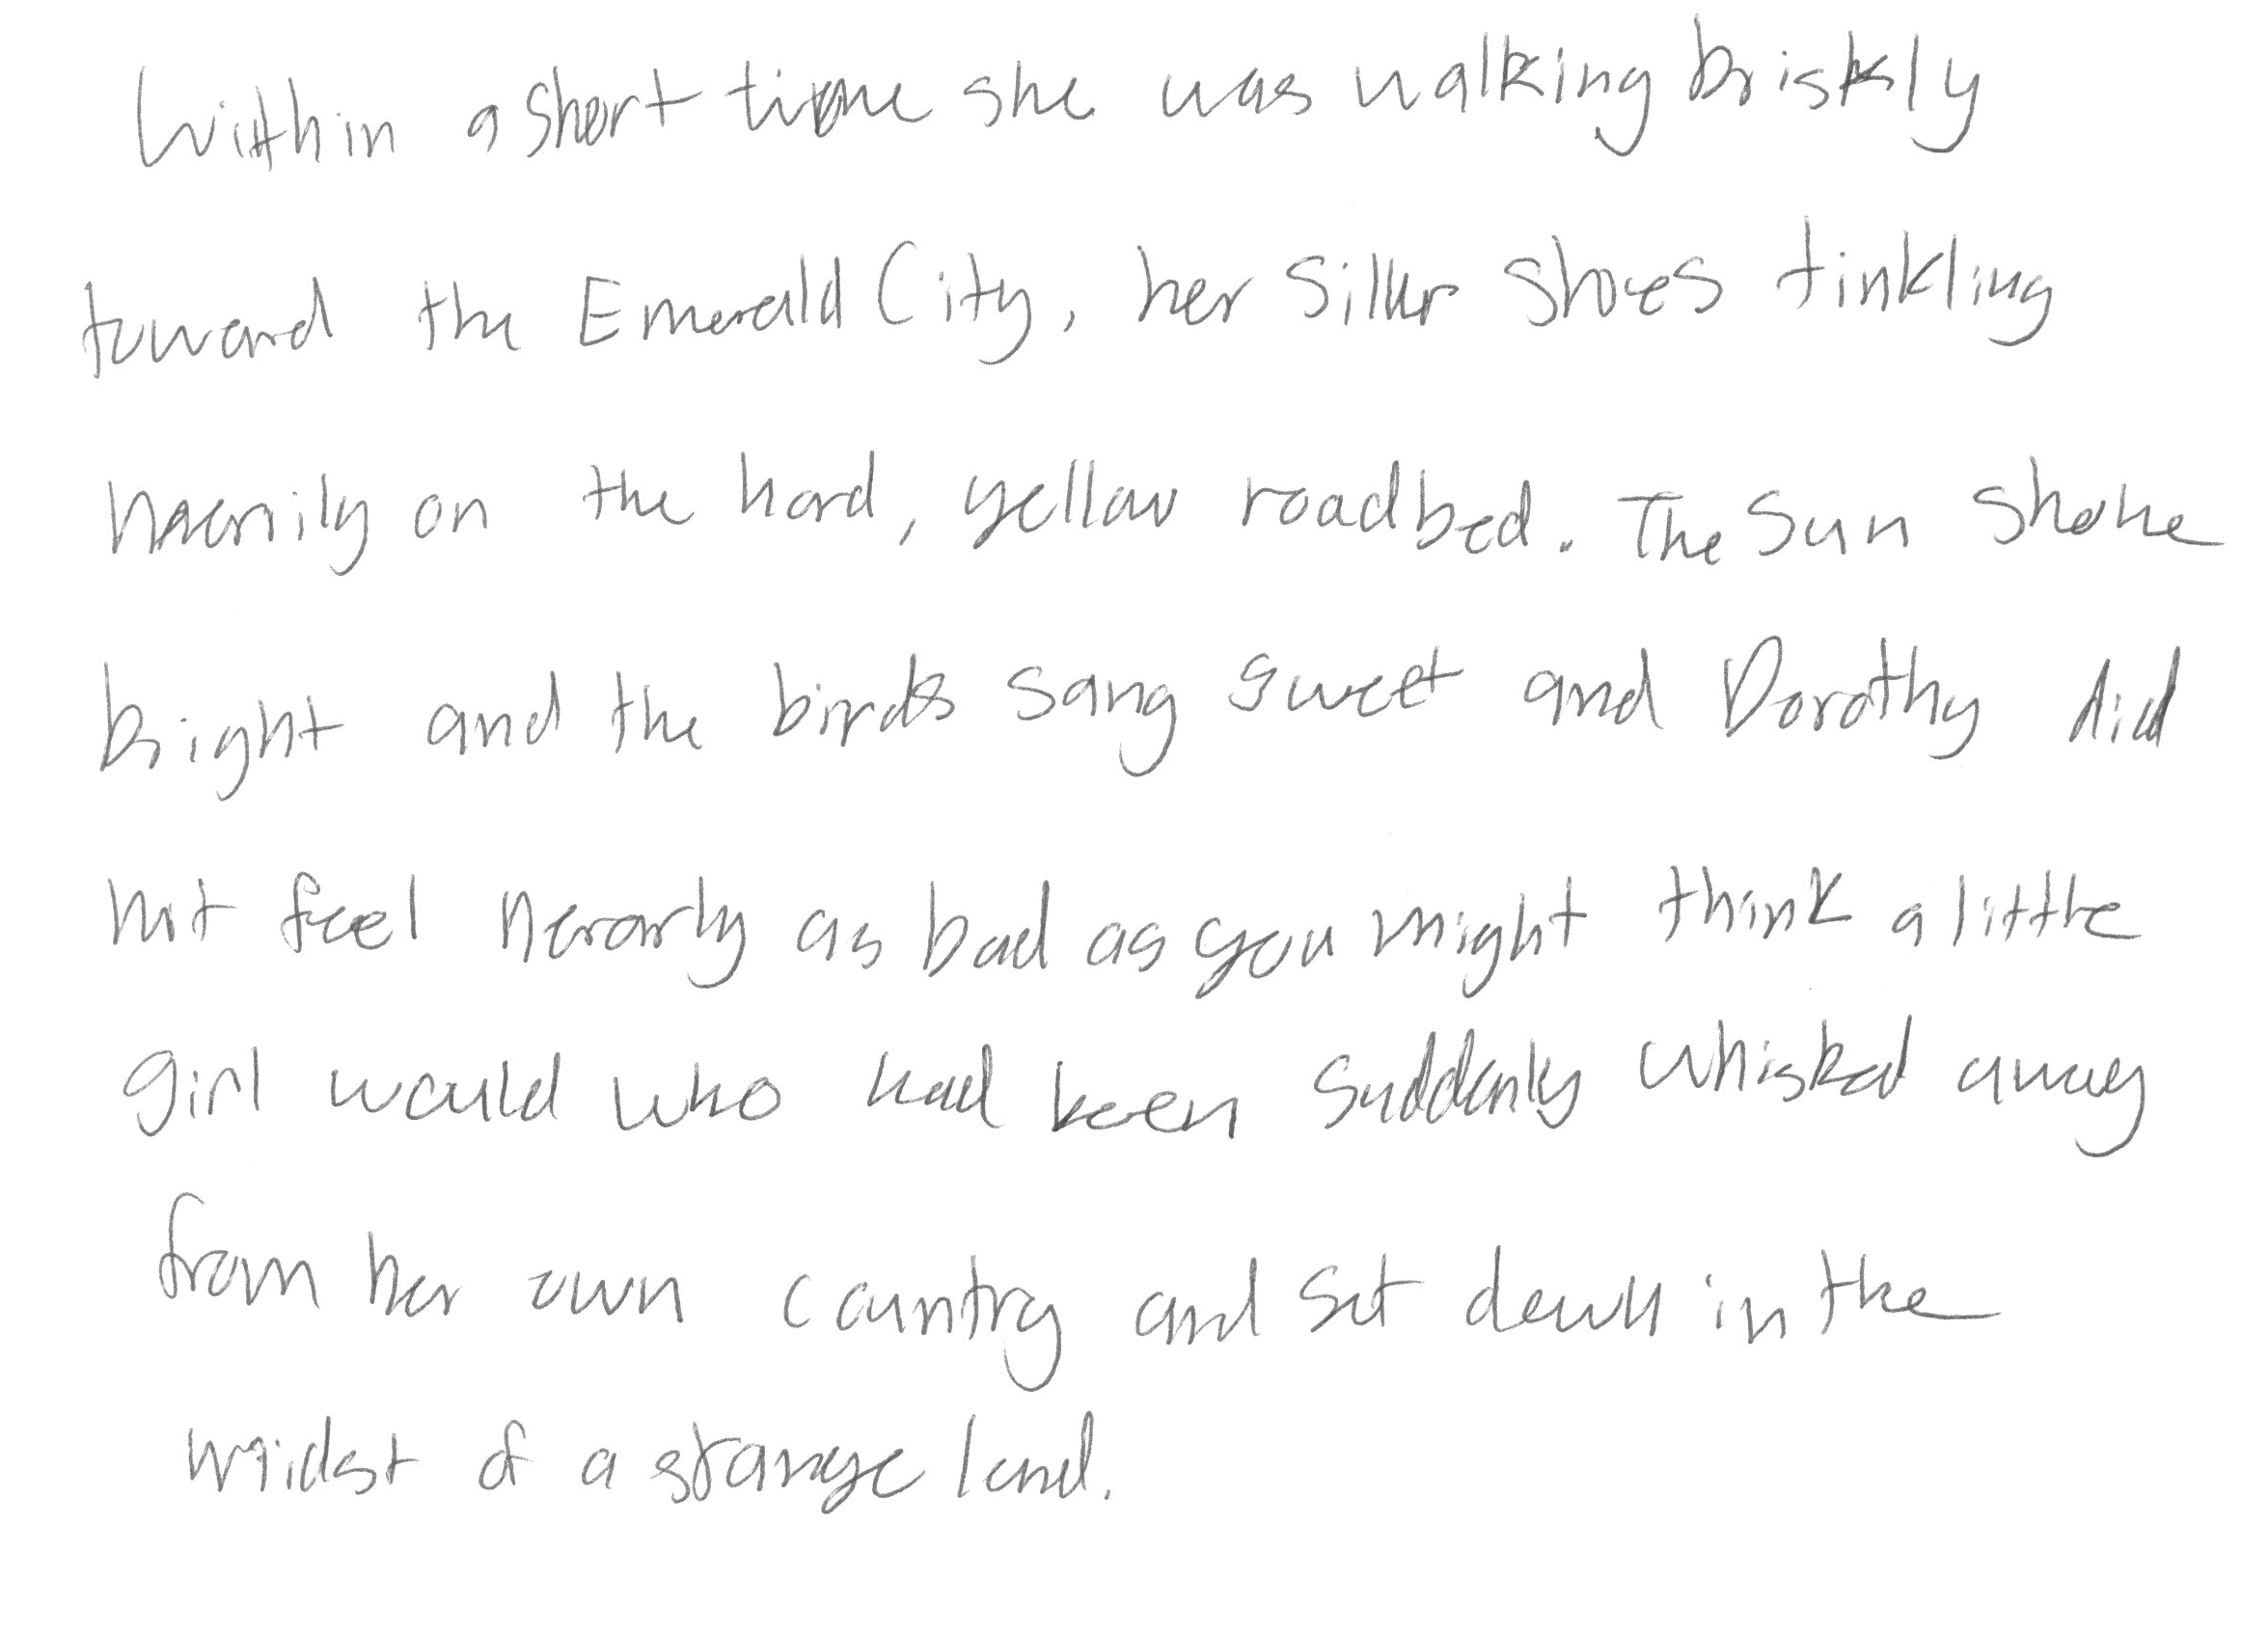 Within a short time she was walking briskly
toward the Emerald City, her Silver Shoes tinkling
merrily on the hard, yellow roadbed. The sun shone
bright and the birds sang sweet and Dorothy did
not feel nearly as bad as you might think a little
girl would who had been suddenly whisked away
from her own country and set down in the
midst of a strange land.